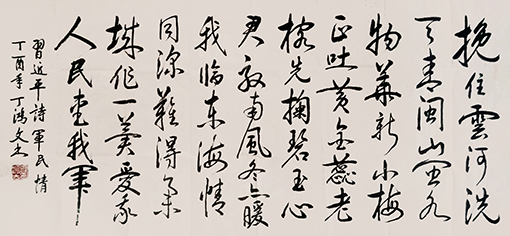 挽住雲河洗
天青闽山闽水
物華新小梅
正吐黄金蕊老
榕先掬碧玉心
君驭南風冬亦暖
我临东海情
同深難得举
城作一慶愛我
人民爱我軍
習近平詩軍民情
丁酉年丁鴻文书